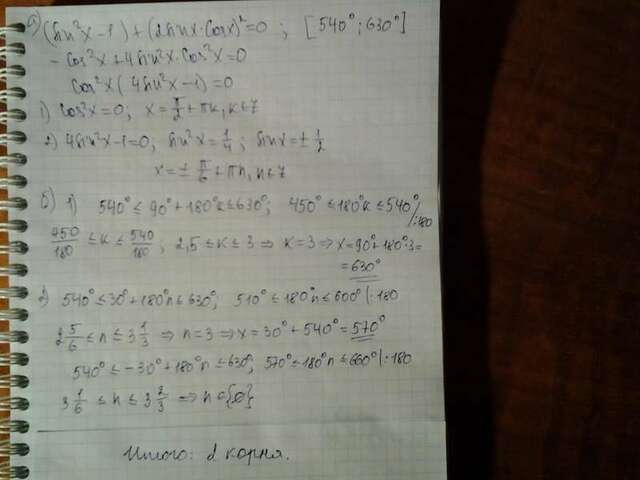 а) (sin²x - 1) + (2sinx·cosx)² = 0 ; [540°; 630°]
- cos²x + 4sin²x·cos²x = 0
cos²x (4sin²x - 1) = 0
1) cos²x = 0; x = π/2 + πk, k∈Z
2) 4sin²x - 1 = 0; sin²x = 1/4; sinx = ± 1/2
x = ± π/6 + πn, n∈Z
б) 1) 540° ≤ 90° + 180°k ≤ 630°; 450° ≤ 180°k ≤ 540° /:180
450/180 ≤ k ≤ 540/180; 2,5 ≤ k ≤ 3 ⇒ k = 3 ⇒ x = 90° + 180°·3 =
= 630°
2) 540° ≤ 30° + 180°n ≤ 630°; 510° ≤ 180°n ≤ 600° |:180
2 5/6 ≤ n ≤ 3 1/3 ⇒ n = 3 ⇒ x = 30° + 540° = 570°
540° ≤ -30° + 180°n ≤ 630°; 570° ≤ 180°n ≤ 660° |:180
3 1/6 ≤ n ≤ 3 2/3 ⇒ n∈{∅}
Итого: 2 корня.